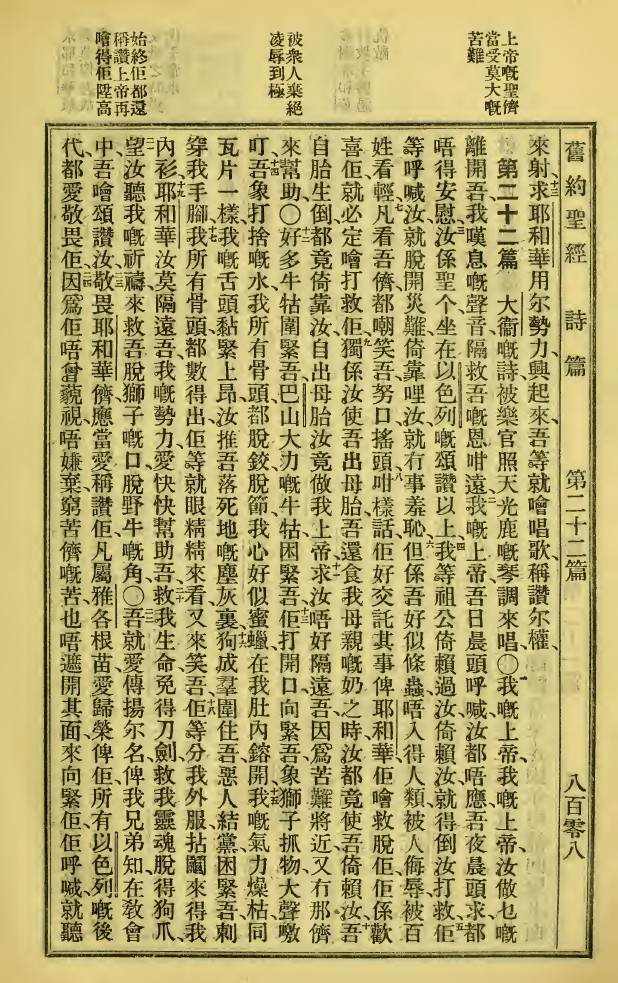 舊約聖經　詩篇　第二十二篇　八百零八
上帝嘅聖儕
當受莫大嘅
苦難
被衆人棄絕
凌辱到極
始終佢都還
稱讚上帝再
噲得佢陞高
來射、十三求耶和華用尔勢力興起來、吾等就噲唱歌稱讚尔權、
第二十二篇　大衞嘅詩被樂官照天光鹿嘅琴調來唱〇一我嘅上帝、我嘅上帝、汝做乜嘅
離開吾、我嘆息嘅聲音隔救吾嘅恩咁遠、二我嘅上帝、吾日晨頭呼喊汝都唔應、吾夜晨頭求、都
唔得安慰、三汝係聖个、坐在以色列嘅頌讚以上、四我等祖公倚賴過汝、倚賴汝就得倒汝打救、五佢
等呼喊汝就脫開災難、倚靠哩汝就冇事羞恥、六但係吾好似條蟲、唔入得人類、被人侮辱、被百
姓看輕、七凡看吾儕都嘲笑吾、努口搖頭咁樣話、八佢好交託其事俾耶和華、佢噲救脫佢、佢係歡
喜佢、就必定噲打救佢、九獨係汝使吾出母胎、吾還食我母親嘅奶之時、汝都竟使吾倚賴汝、十吾
自胎生倒都竟倚靠汝、自出母胎汝竟做我上帝、十一求汝唔好隔遠吾、因爲苦難將近、又冇那儕
來幫助、〇十二好多牛牯圍緊吾、巴山大力嘅牛牯困緊吾、十三佢打開口向緊吾、象獅子抓物大聲噭
叮、十四吾象打捨嘅水、我所有骨頭都脫鉸脫節、我心好似蜜蠟在我肚內鎔開、十五我嘅氣力燥枯同
瓦片一樣、我嘅舌頭黏緊上昻、汝推吾落死地嘅塵灰裏、十六狗成羣圍住吾、惡人結黨困緊吾、刺
穿我手腳、十七我所有骨頭都數得出、佢等就眼精精來看、又來笑吾、十八佢等分我外服、拈鬮來得我
內衫、十九耶和華汝莫隔遠吾、我嘅勢力愛快快幫助吾、二十救我生命免得刀劍、救我靈魂脫得狗爪、
二一望汝聽我嘅祈禱、來救吾脫獅子嘅口、脫野牛嘅角、〇二二吾就愛傳揚尔名俾我兄弟知、在敎會
中、吾噲頌讚汝、二三敬畏耶和華儕應當愛稱讚佢、凡屬雅各根苗、愛歸榮俾佢、所有以色列嘅後
代、都愛敬畏佢、二四因爲佢唔曾藐視唔嫌棄窮苦儕嘅苦、也唔遮開其面來向緊佢、佢呼喊、就聽